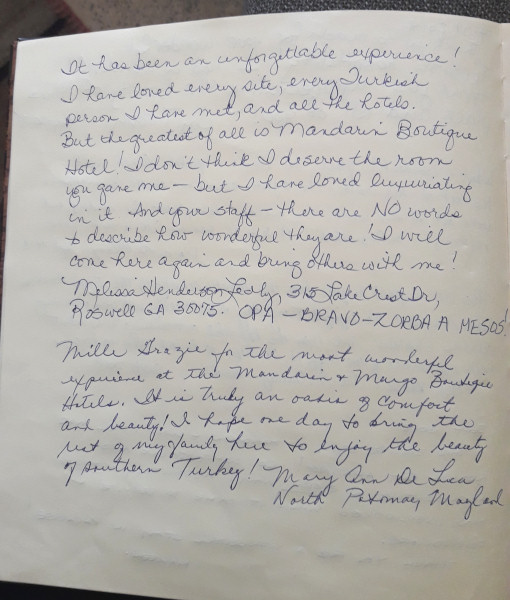 It has been an unforgettable experience!
I have loved every site, every Turkish
person I have met, and all the hotels.
But the greatest of all is Mandarin Boutique
Hotel! I don't think I deserve the room
you gave me - but I have loved luxuriating
in it. And your staff - there are NO words
to describe how wonderful they are! I will
come here again and bring others with me!
Melissa Henderson 315 Lake Crest Dr,
Roswell GA 30075. OPA - BRAVO - ZORBA A MESOS!
Mille Grazie for the most wonderful
experience at the Mandarin & Margo Boutique
Hotels. It is truly an oasis of comfort
and beauty! I hope one day to bring the
rest of my family here to enjoy the beauty
of southern Turkey! Mary Ann De Luca
North Potomac, Maryland